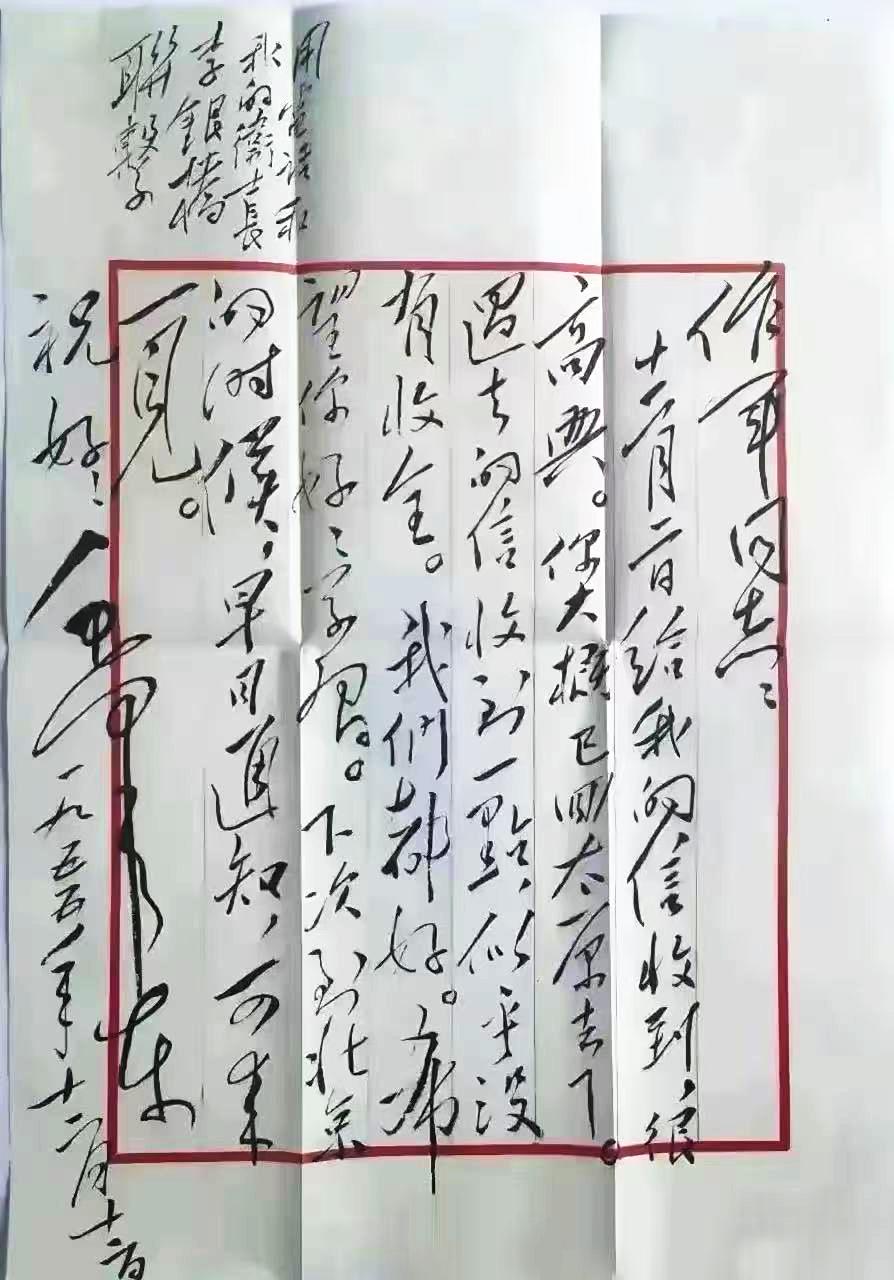 作軍同志：
十一月二日給我的信收到，很
高興。你大概已回太原去了。
過去的信收到一點，似乎没
有收全。我們都好。希
望你好好学習。下次到北京
的时候，早日通知，可来
一見。
用電話和
我的衛士長
李銀橋
聯繫
祝好！
毛澤東
一九五五年十二月十二日